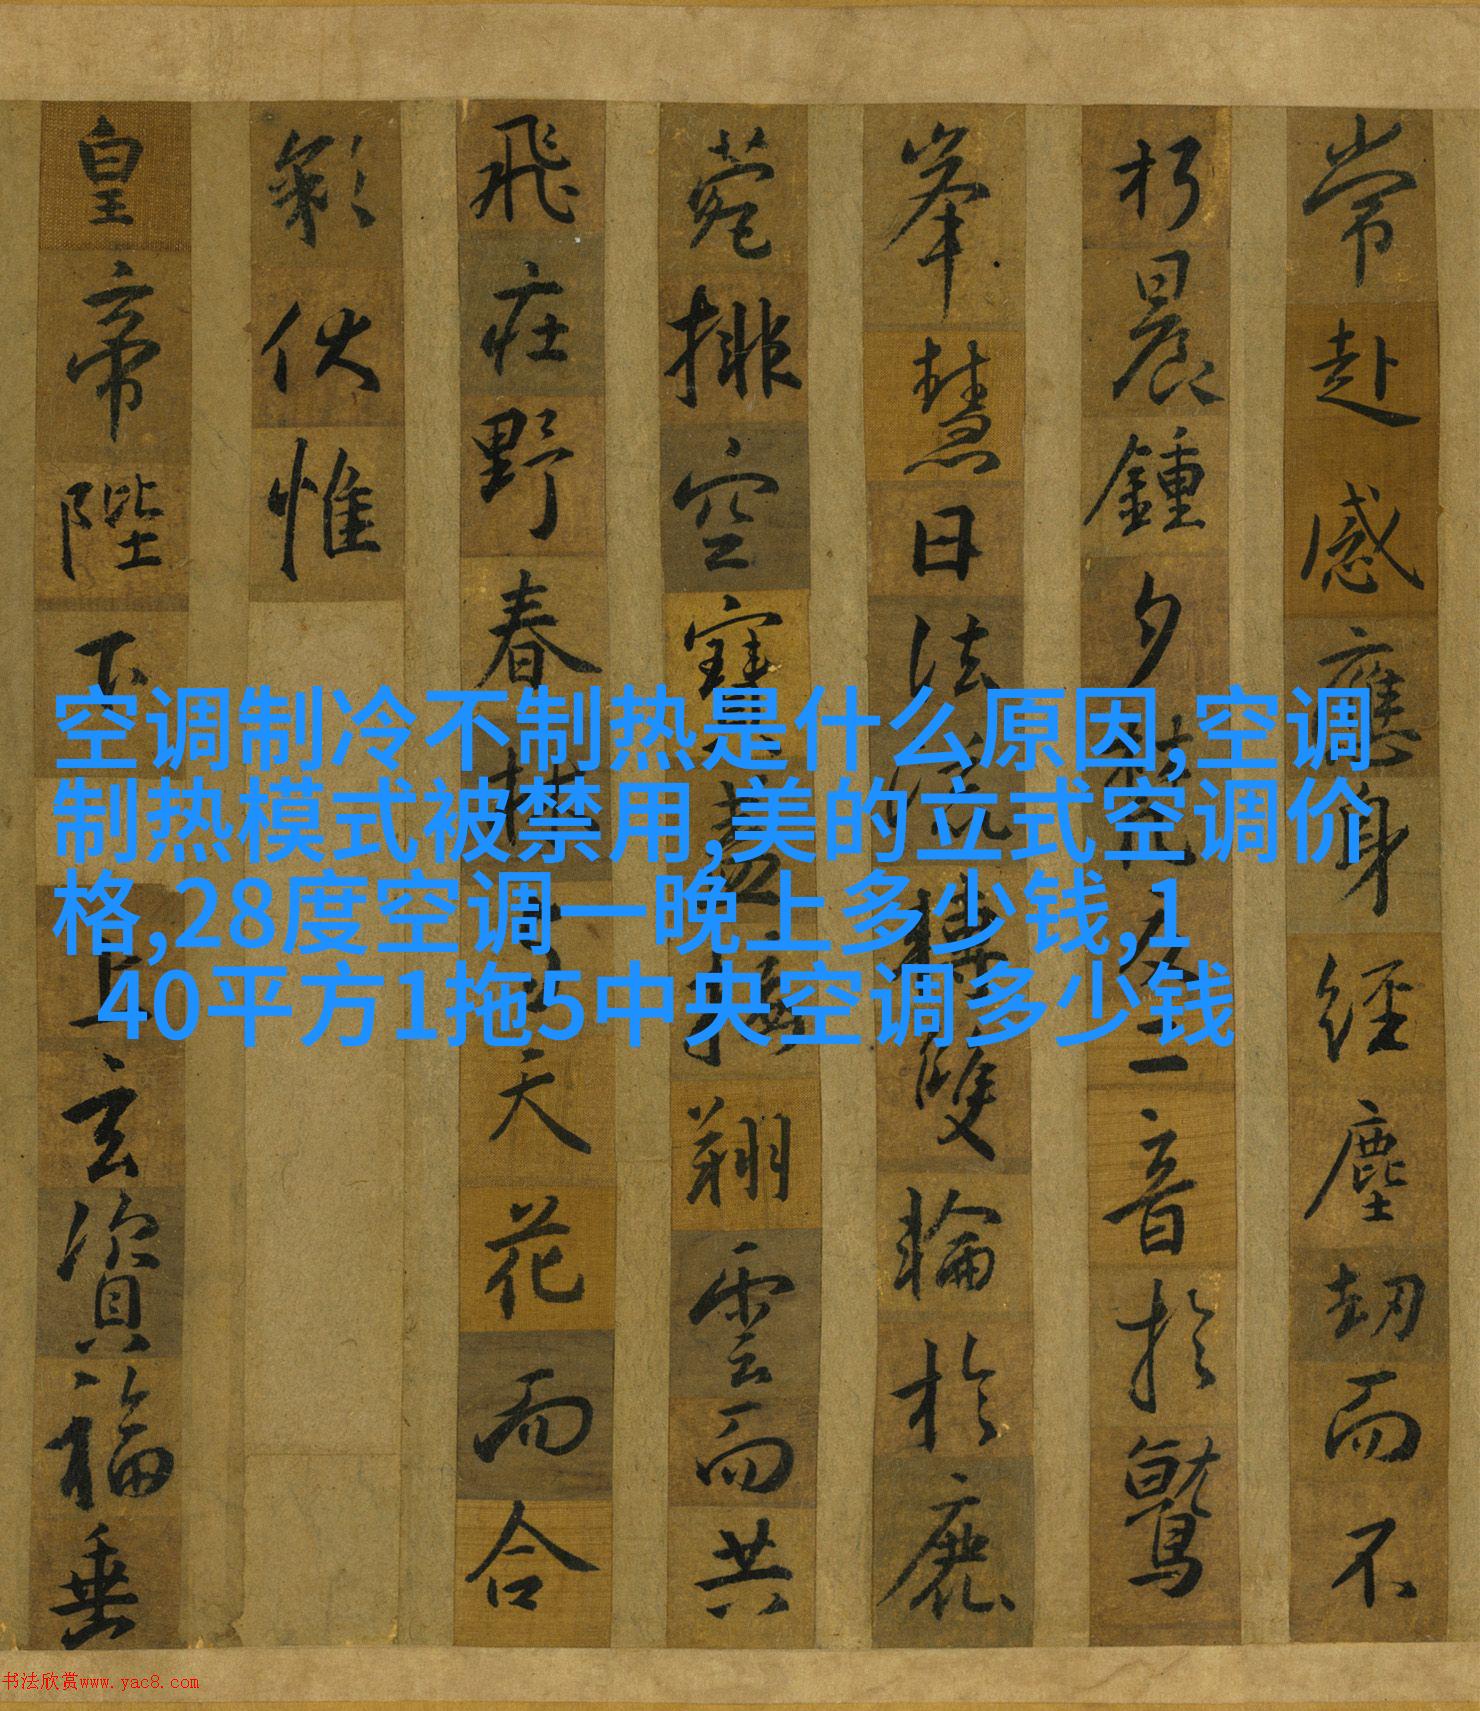 常赴感應身經塵劫而不
朽晨鍾夕梵交二音於鷲
峯慧日法流轉雙輪於鹿
菀排空寶蓋接翔雲而共
飛莊野春林与天花而合
彩伏惟
皇帝陛下上玄資福垂
空调制冷不制热是什么原因,空调
制热模式被禁用,美的立式空调价
格,28度空调一晚上多少钱,1
40平方1拖5中央空调多少钱
书法欣赏www.yac8.com